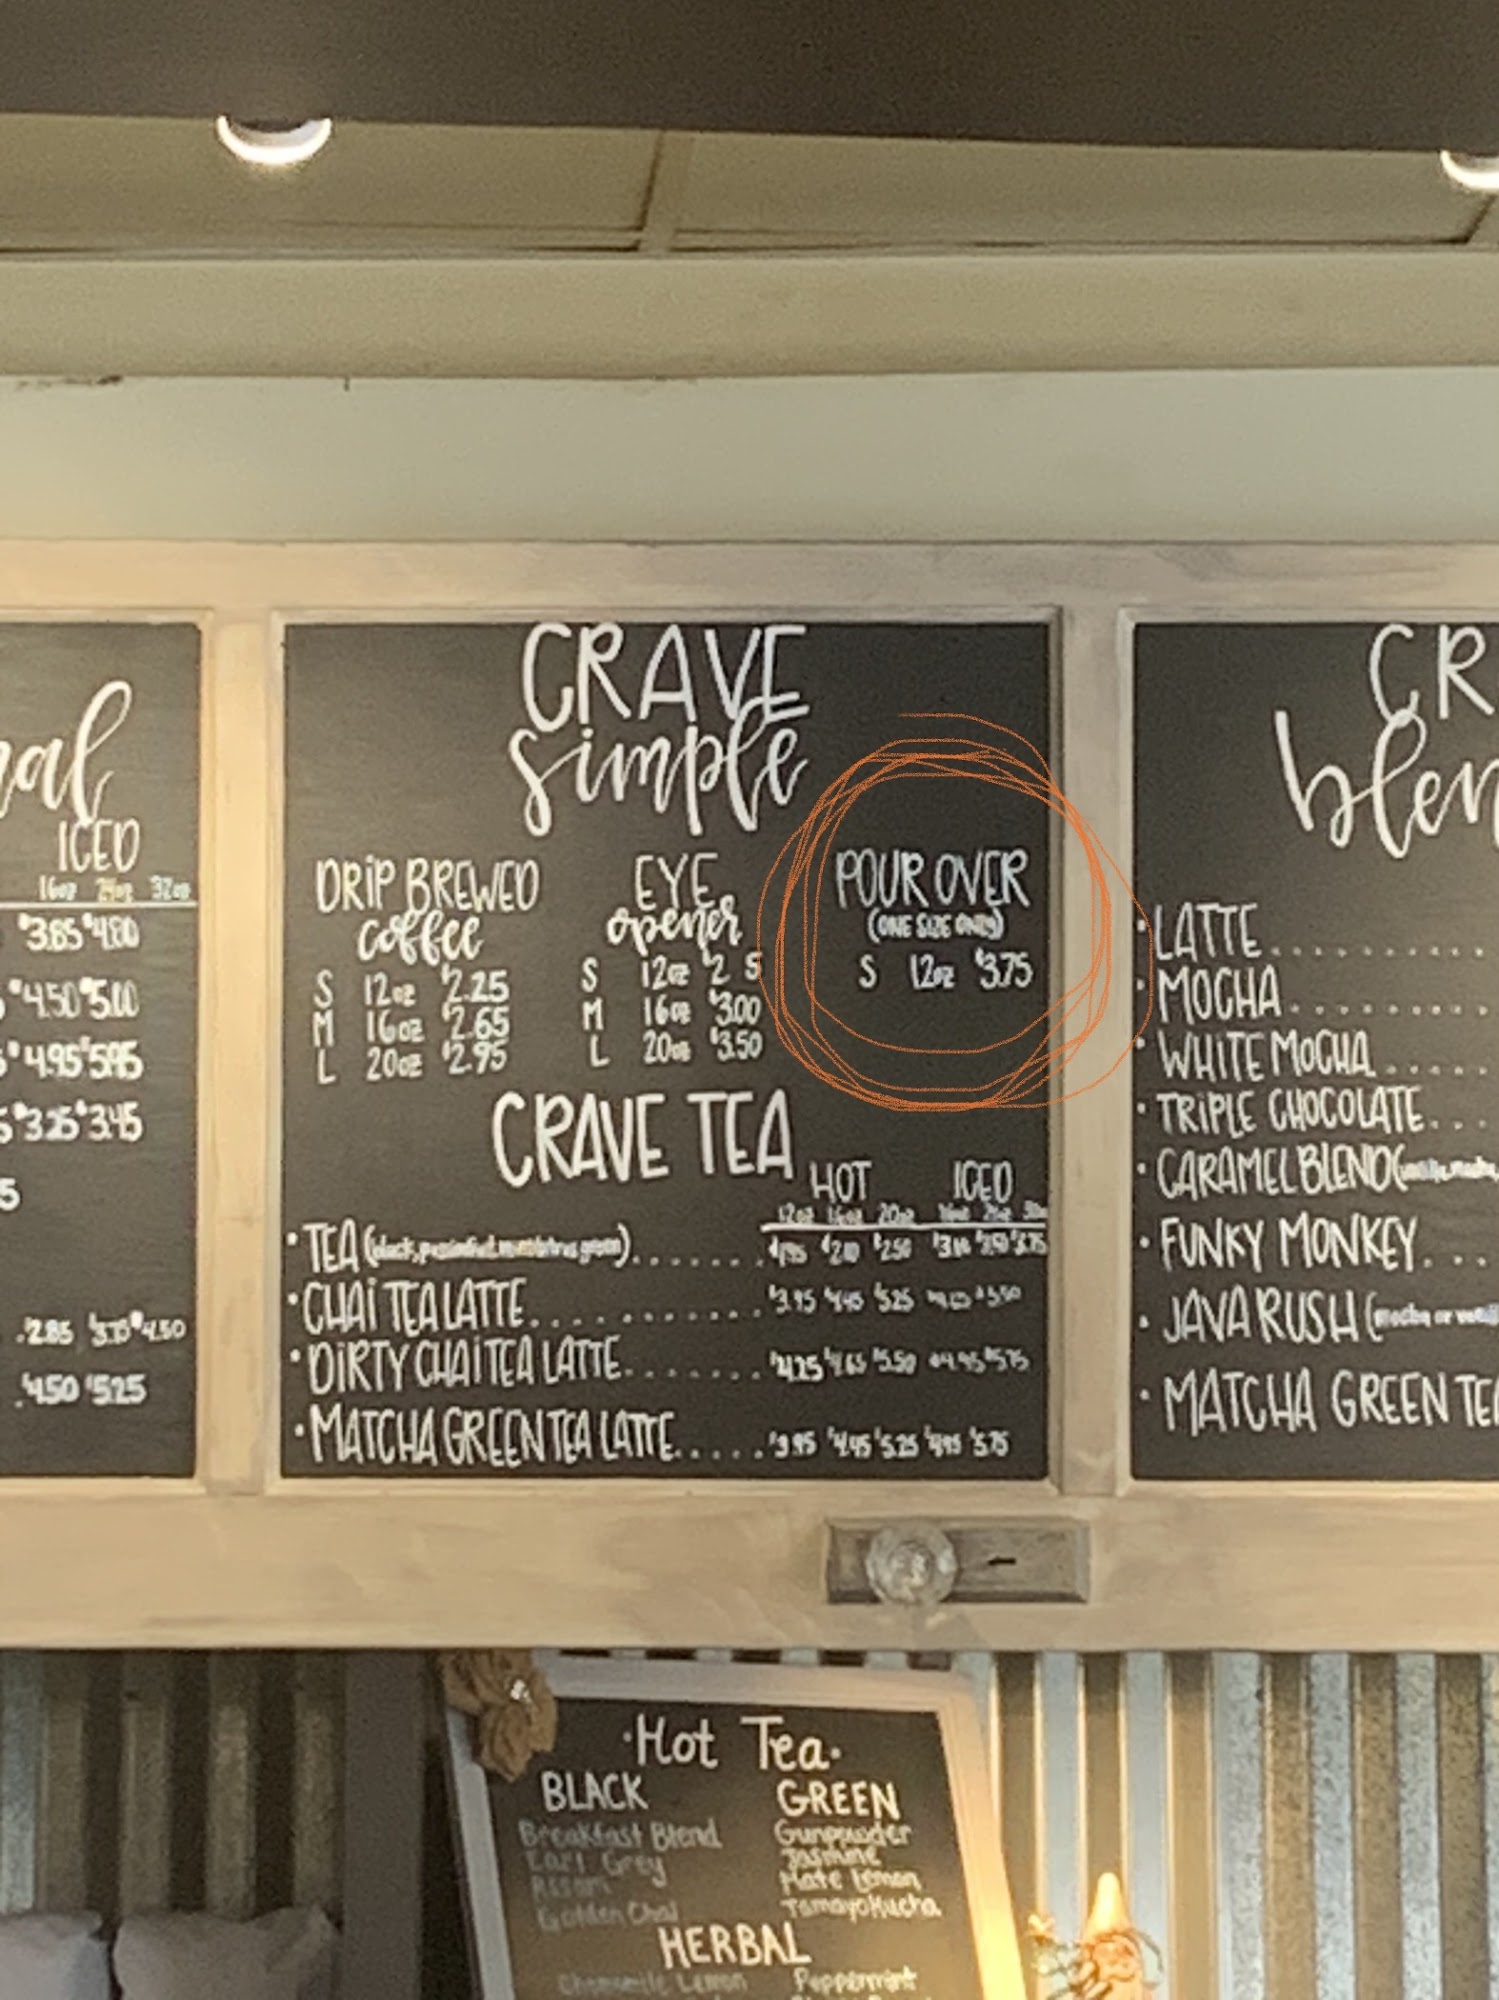 al
ICED
16oz 24oz 32oz
$3.85 $4.80
$4.50 $5.00
$4.95 $5.95
$3.25 $3.45
5
.$2.85 $3.75 $4.50
.$4.50 $5.25
CRAVE
simple
DRIP BREWED
coffee
S 12oz $2.25
M 16oz $2.65
L 20oz $2.95
EYE
opener
S 12oz $2 5
M 16oz $3.00
L 20oz $3.50
POUR OVER
(ONE SIZE ONLY)
S 12oz $3.75
CRAVE TEA
HOT ICED
12oz 16oz 20oz 16oz 24oz
• TEA ....... $1.95 $2.50
• CHAI TEA LATTE.......... $3.95 $4.45 $5.25 $5.50
• DIRTY CHAI TEA LATTE....... $4.25 $4.65 $5.50 $4.95 $5.75
• MATCHA GREEN TEA LATTE..... $3.95 $4.45 $5.25 $4.95 $5.75
CR
blen
• LATTE
• MOCHA
• WHITE MOCHA
• TRIPLE CHOCOLATE
• CARAMEL BLEND
• FUNKY MONKEY
• JAVA RUSH (mocha or
• MATCHA GREEN TEA
·Hot Tea·
BLACK
Breakfast Blend
Earl Grey
Assam
Golden Chai
GREEN
Gunpowder
Jasmine
Mate Lemon
Tamayokucha
HERBAL
Chamomile Lemon Peppermint